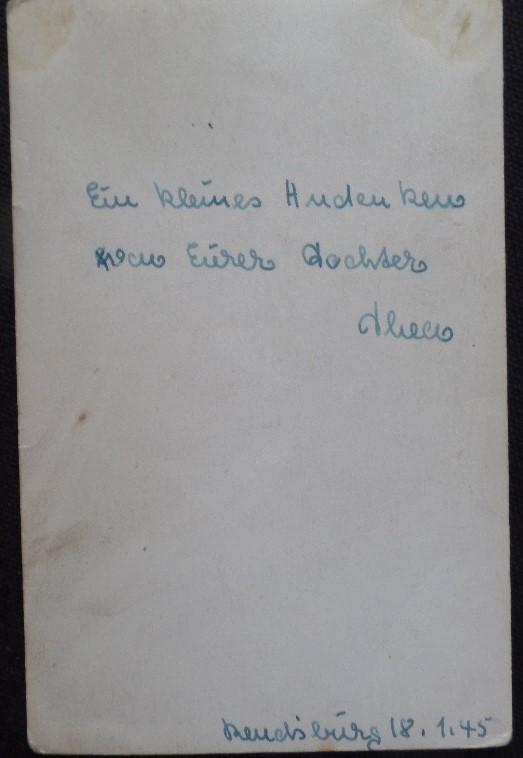 Ein kleines Andenken
von Eurer Tochter
Thea
Rendsburg 18.1.45